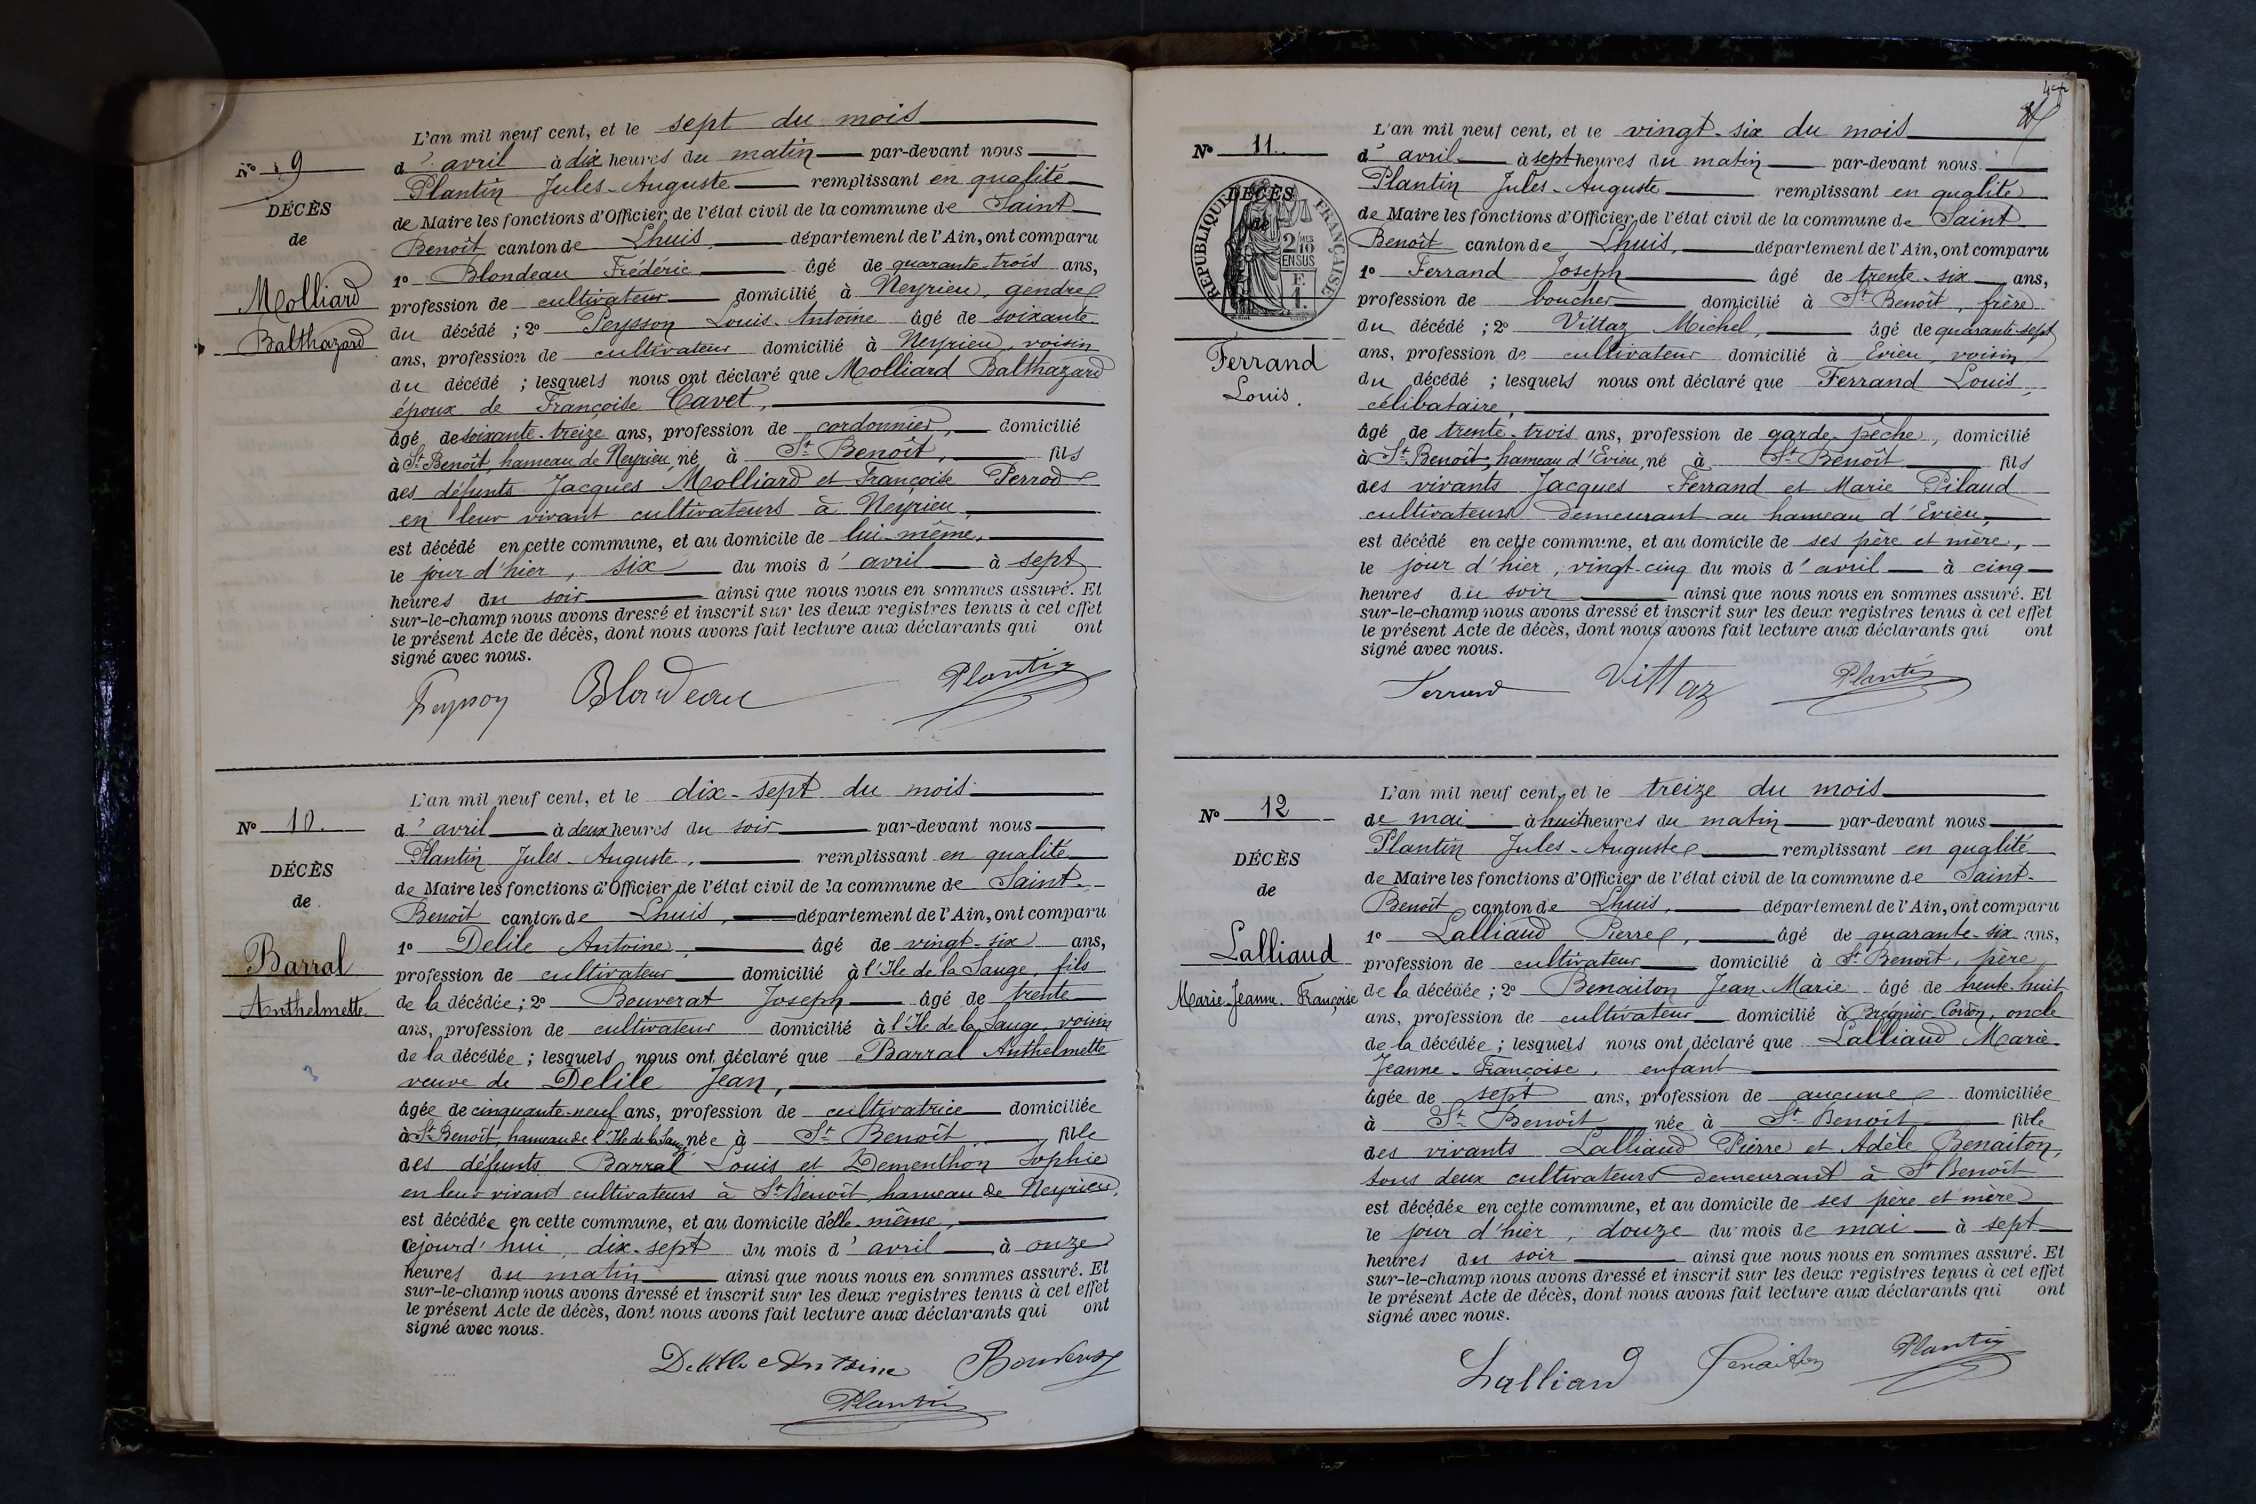 L'an mil neuf cent, et le sept du mois
No 9
d'avril à dix heures du matin par-devant nous
Plantin Jules-Auguste remplissant en qualité
DÉCÈS
de Maire les fonctions d'Officier de l'état civil de la commune de Saint
de
Benoît canton de Lhuis, département de l'Ain, ont comparu
1o Blondeau Frédéric âgé de quarante-trois ans,
Molliard
profession de cultivateur domicilié à Neyrieu, gendre
Balthazard
du décédé ; 2o Peysson Louis-Antoine âgé de soixante
ans, profession de cultivateur domicilié à Neyrieu, voisin
du décédé ; lesquels nous ont déclaré que Molliard Balthazard
époux de Françoise Cavet,
âgé de soixante-treize ans, profession de cordonnier, domicilié
à St Benoît, hameau de Neyrieu, né à St Benoît, fils
des défunts Jacques Molliard et Françoise Perrod
en leur vivant cultivateurs à Neyrieu,
est décédé en cette commune, et au domicile de lui-même,
le jour d'hier, six du mois d'avril à sept
heures du soir ainsi que nous nous en sommes assuré. Et
sur-le-champ nous avons dressé et inscrit sur les deux registres tenus à cet effet
le présent Acte de décès, dont nous avons fait lecture aux déclarants qui ont
signé avec nous.
Peysson Blondeau Plantin
L'an mil neuf cent, et le dix-sept du mois
No 10.
d'avril à deux heures du soir par-devant nous
Plantin Jules-Auguste, remplissant en qualité
DÉCÈS
de Maire les fonctions d'Officier de l'état civil de la commune de Saint-
de
Benoît canton de Lhuis, département de l'Ain, ont comparu
1o Delile Antoine, âgé de vingt-six ans,
Barral
profession de cultivateur domicilié à l'Ile de la Sauge, fils
Anthelmette
de la décédée ; 2o Bouverat Joseph âgé de trente
ans, profession de cultivateur domicilié à l'Ile de la Sauge, voisin
de la décédée ; lesquels nous ont déclaré que Barral Anthelmette
veuve de Delile Jean,
âgée de cinquante-neuf ans, profession de cultivatrice domiciliée
à St Benoît, hameau de l'Ile de la Sauge née à St Benoît fille
des défunts Barral Louis et Dementhon Sophie
en leur vivant cultivateurs à St Benoît, hameau de Neyrieu,
est décédée en cette commune, et au domicile d'elle-même,
cejourd'hui, dix-sept du mois d'avril à onze
heures du matin ainsi que nous nous en sommes assuré. Et
sur-le-champ nous avons dressé et inscrit sur les deux registres tenus à cet effet
le présent Acte de décès, dont nous avons fait lecture aux déclarants qui ont
signé avec nous.
Delille Antoine Bouverat
Plantin
L'an mil neuf cent, et le vingt-six du mois
No 11.
d'avril à sept heures du matin par-devant nous
Plantin Jules-Auguste remplissant en qualité
DÉCÈS
de Maire les fonctions d'Officier de l'état civil de la commune de Saint
de
RÉPUBLIQUE FRANÇAISE
2/10
EN SUS
F.
1.
Benoît canton de Lhuis, département de l'Ain, ont comparu
1o Ferrand Joseph âgé de trente-six ans,
profession de boucher domicilié à St Benoît, frère
du décédé ; 2o Vittaz Michel, âgé de quarante-sept
Ferrand
ans, profession de cultivateur domicilié à Evieu, voisin
Louis.
du décédé ; lesquels nous ont déclaré que Ferrand Louis,
célibataire,
âgé de trente-trois ans, profession de garde-pêche, domicilié
à St Benoît, hameau d'Evieu, né à St Benoît fils
des vivants Jacques Ferrand et Marie Pilaud
cultivateurs demeurant au hameau d'Evieu,
est décédé en cette commune, et au domicile de ses père et mère,
le jour d'hier, vingt-cinq du mois d'avril à cinq
heures du soir ainsi que nous nous en sommes assuré. Et
sur-le-champ nous avons dressé et inscrit sur les deux registres tenus à cet effet
le présent Acte de décès, dont nous avons fait lecture aux déclarants qui ont
signé avec nous.
Ferrand Vittaz Plantin
L'an mil neuf cent, et le treize du mois
No 12
de mai à huit heures du matin par-devant nous
Plantin Jules-Auguste remplissant en qualité
DÉCÈS
de Maire les fonctions d'Officier de l'état civil de la commune de Saint-
de
Benoît canton de Lhuis, département de l'Ain, ont comparu
1o Lalliaud Pierre, âgé de quarante-six ans,
Lalliaud
profession de cultivateur domicilié à St Benoît, père
Marie-Jeanne-Françoise
de la décédée ; 2o Benaiton Jean-Marie âgé de trente-huit
ans, profession de cultivateur domicilié à Brégnier-Cordon, oncle
de la décédée ; lesquels nous ont déclaré que Lalliaud Marie-
Jeanne-Françoise, enfant
âgée de sept ans, profession de aucune domiciliée
à St Benoît née à St Benoît fille
des vivants Lalliaud Pierre et Adèle Benaiton,
tous deux cultivateurs demeurant à St Benoît
est décédée en cette commune, et au domicile de ses père et mère
le jour d'hier, douze du mois de mai à sept
heures du soir ainsi que nous nous en sommes assuré. Et
sur-le-champ nous avons dressé et inscrit sur les deux registres tenus à cet effet
le présent Acte de décès, dont nous avons fait lecture aux déclarants qui ont
signé avec nous.
Lalliaud Benaiton Plantin